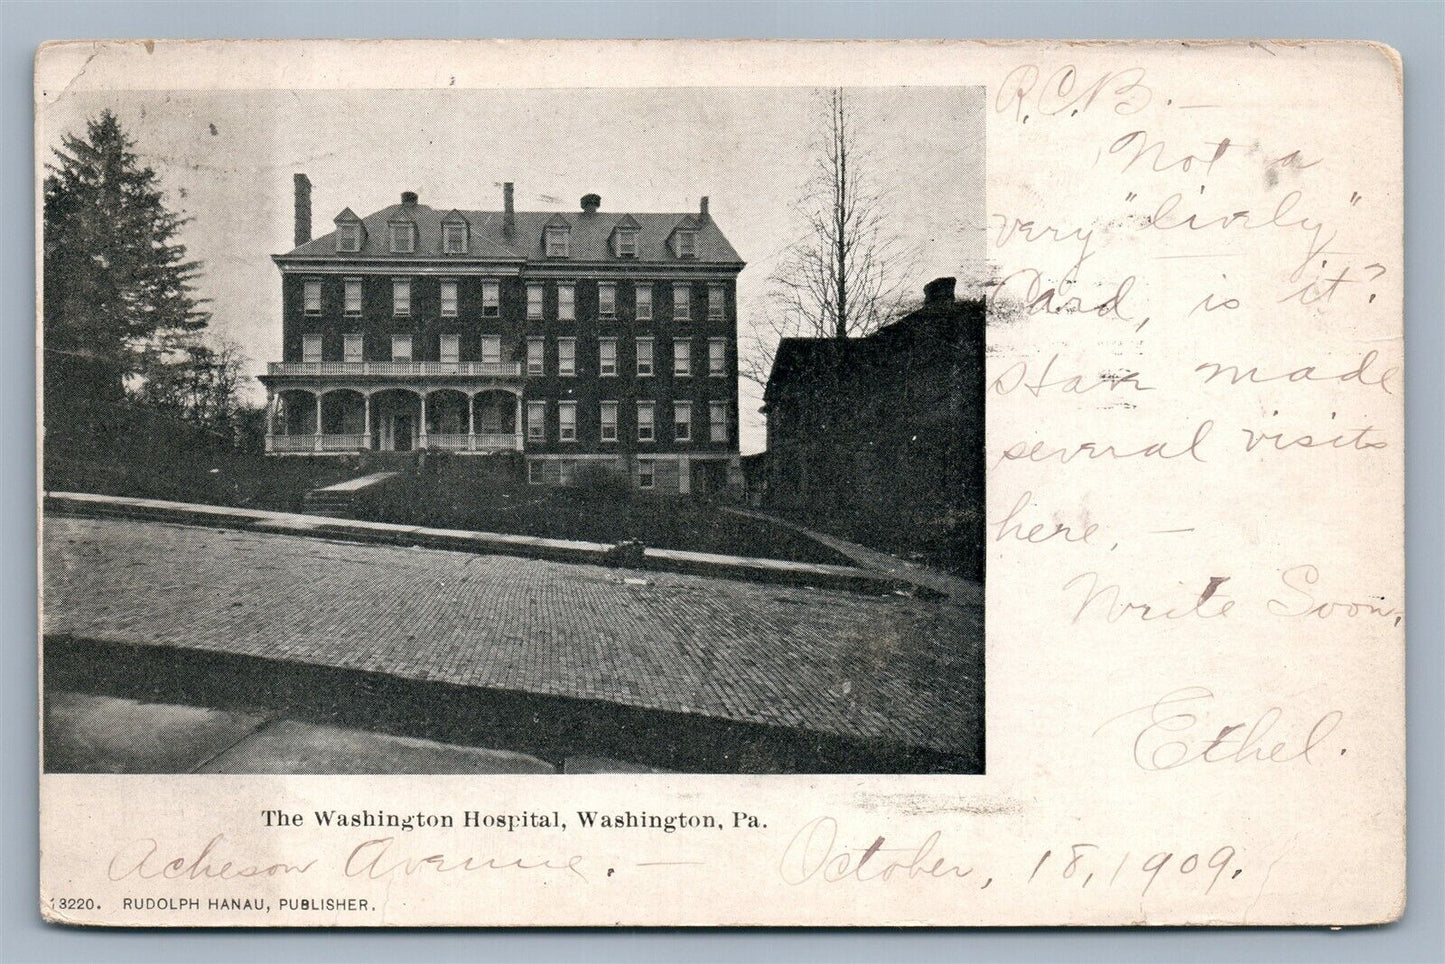 R.C.B. —
Not a
very "lively"
Card, is it?
Stan made
several visits
here, —
Write Soon,
Ethel.
The Washington Hospital, Washington, Pa.
Acheson Avenue. — October, 18, 1909.
13220. RUDOLPH HANAU, PUBLISHER.